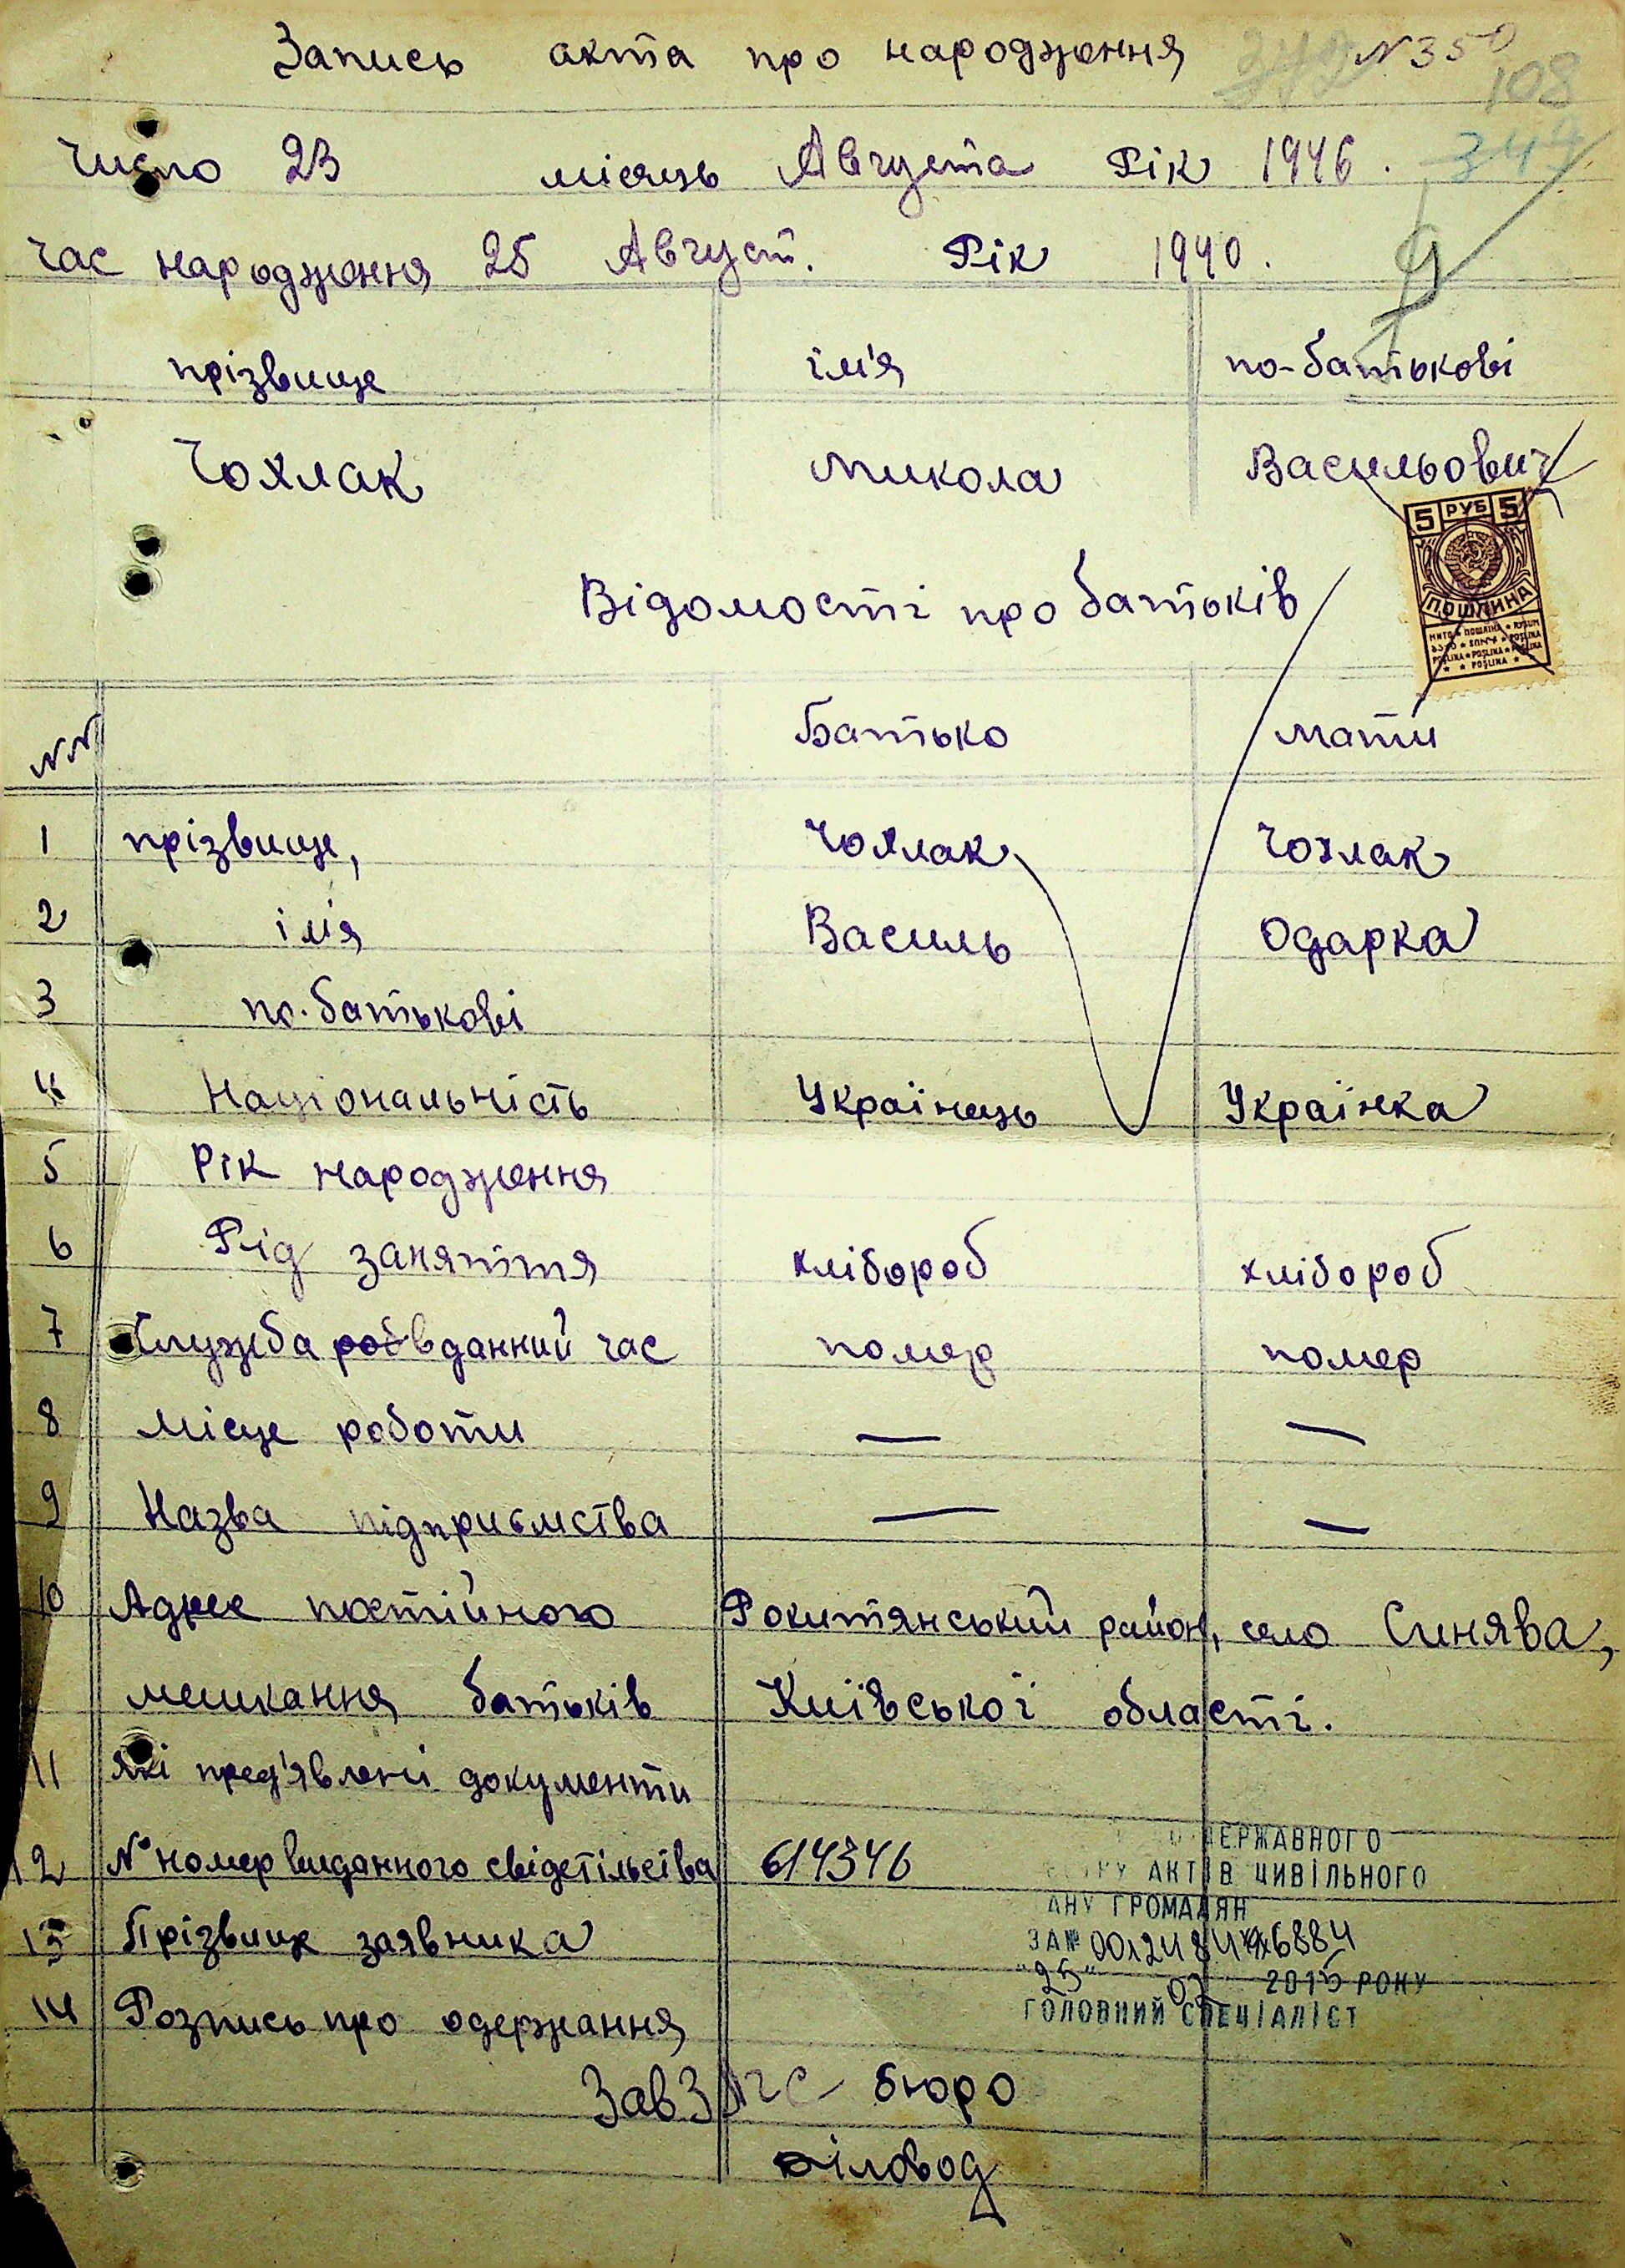 Запись акта про народження N 350
108
Число 23 місяць Августа Рік 1946. 349
Час народження 25 Август. Рік 1940.
прізвище ім'я по-батькові
Чохлак Микола Васильович
5 РУБ 5
ПОШЛИНА
Відомості про батьків
NN Батько Мати
1 прізвище, Чохлак Чохлак
2 імя Василь Одарка
3 по-батькові
4 Національність Українець Українка
5 Рік народження
6 Рід заняття хлібороб хлібороб
7 Служба в данний час помер помер
8 Місце роботи — —
9 Назва підприємства — —
10 Адрес постійного Рокитянський район, село Синява,
мешкання батьків Київської області.
11 Які пред'явлені документи
12 № номер виданного свідетільства 614346
13 Прізвище заявника
14 Розпись про одержання
ДЕРЖАВНОГО
АКТІВ ЦИВІЛЬНОГО
АНУ ГРОМАДЯН
ЗА №
"25" 07 2015 РОКУ
ГОЛОВНИЙ СПЕЦІАЛІСТ
Зав ЗАГС бюро
Діловод